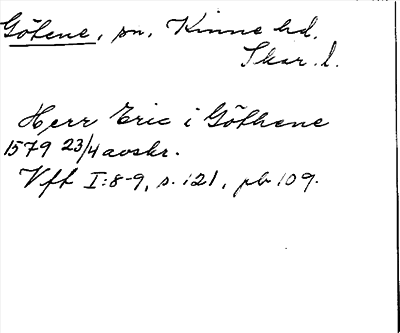 Götene, sn, Kinne hd.
Skar. l.
Herr Eric i Göthene
1579 23/4 avskr.
Vft I:8-9, s. 121, pb 109.